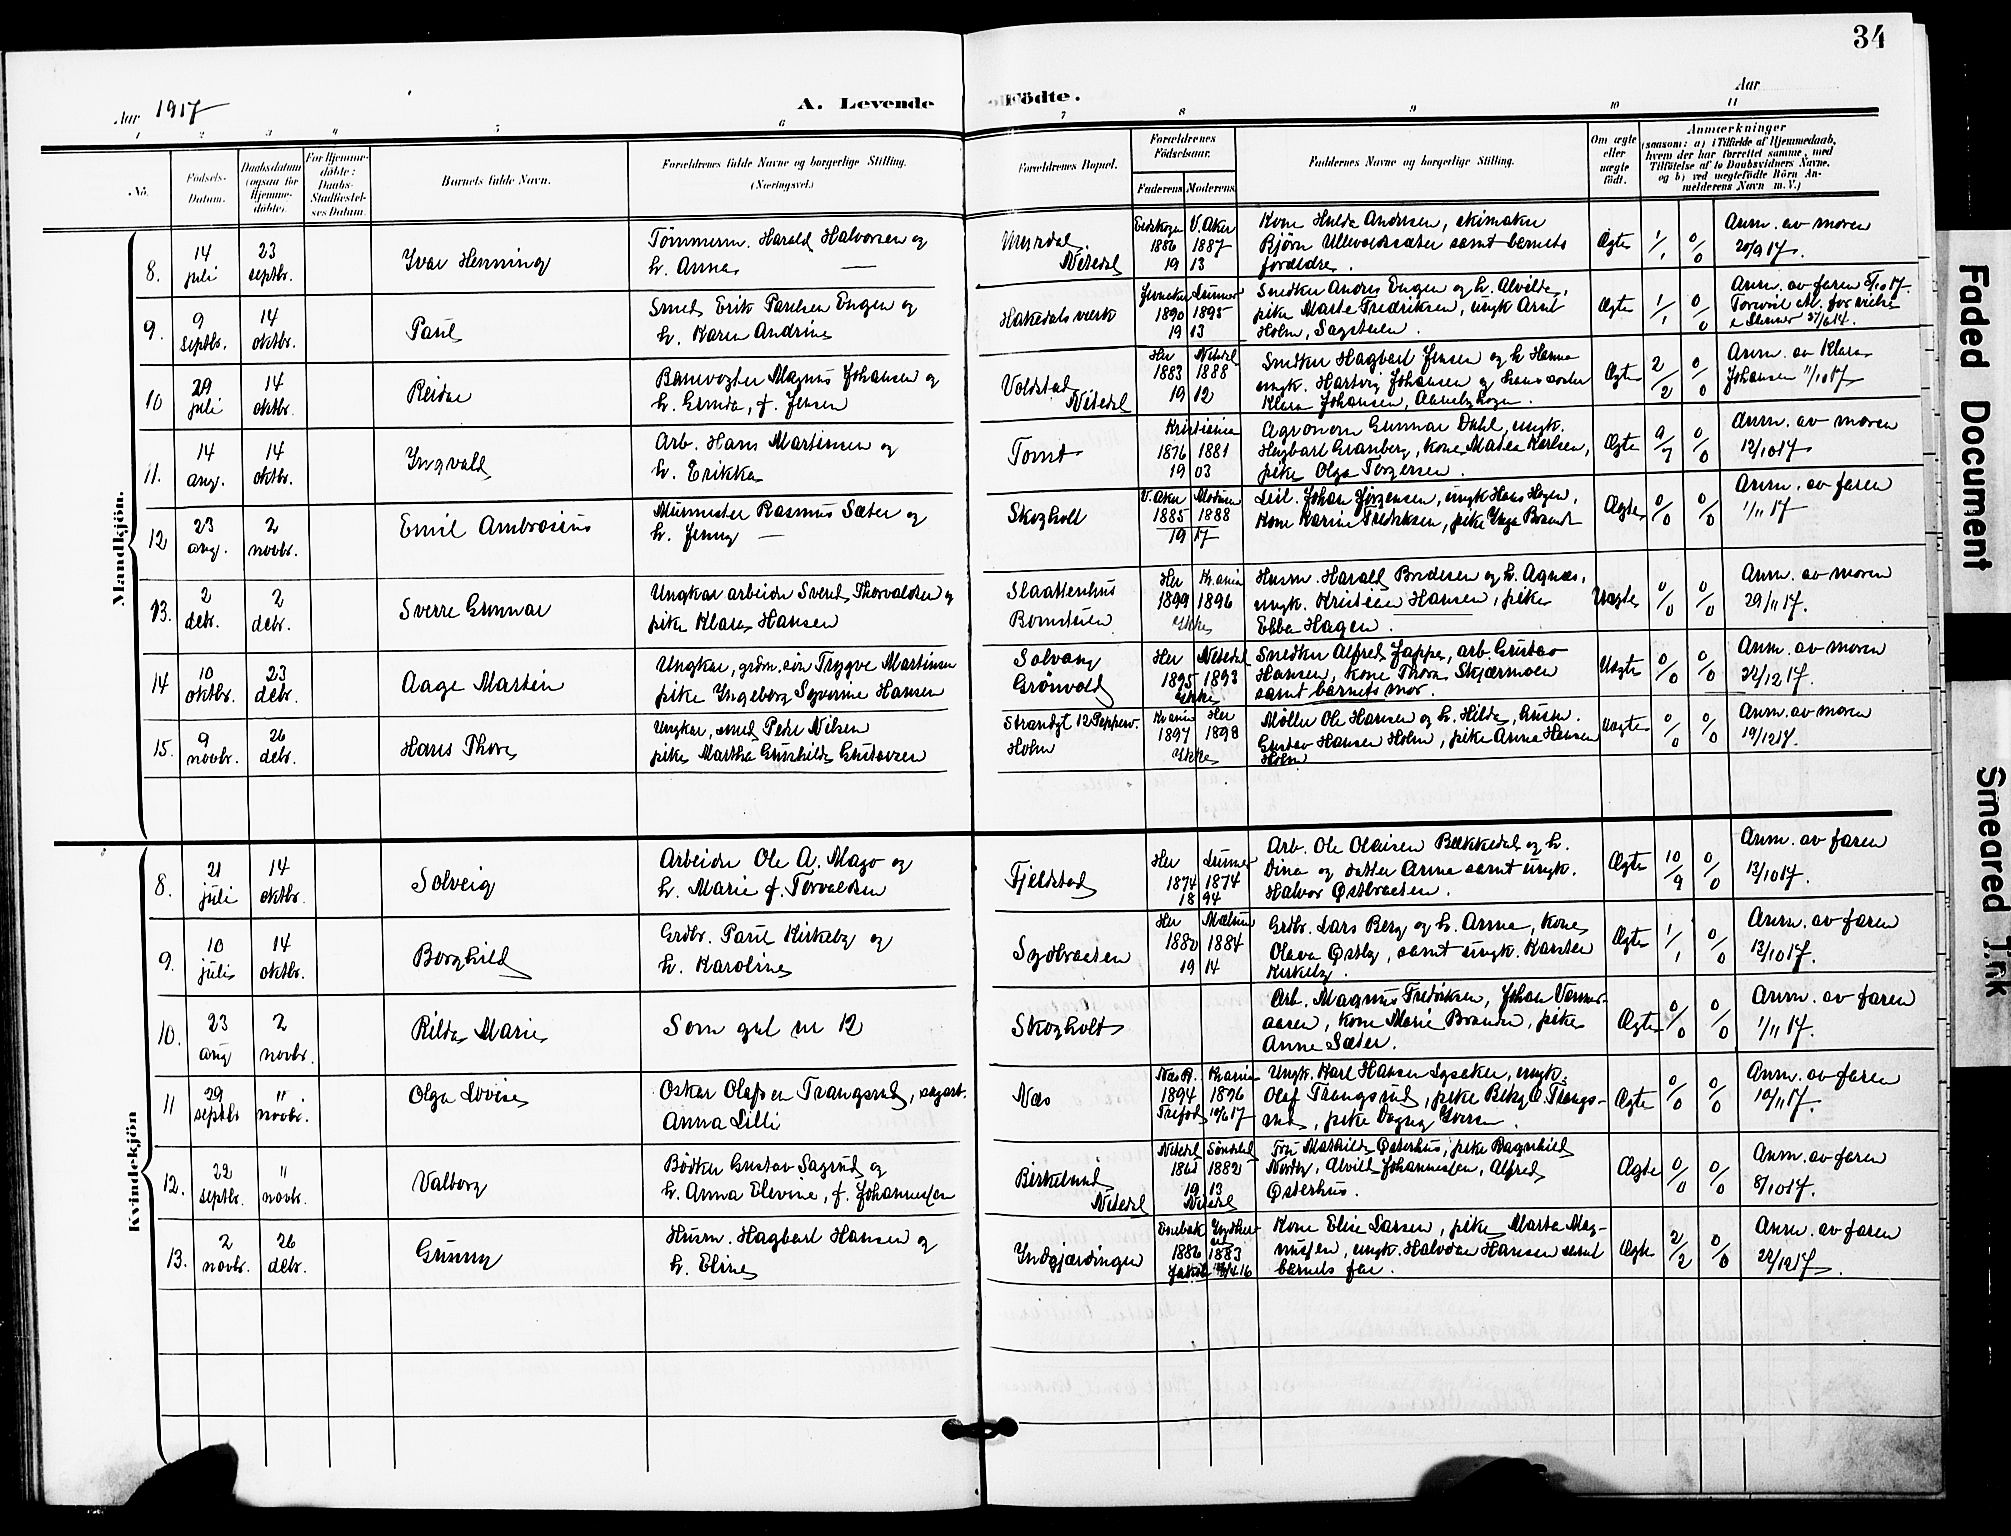 34
Aar 1917
A. Levende Födte.
Aar
1 2 3 4 5 6 7 8 9 10 11
No.
Födsels-Datum.
Daabsdatum (ogsaa for Hjemme-döbte).
For Hjemme-döbte: Daabs-Stadfæstel-ses Datum
Barnets fulde Navn.
Forældrenes fulde Navne og borgerlige Stilling.
(Næringsvei.)
Forældrenes Bopæl.
Forældrenes Födselsaar.
Faderens Moderens
Faddernes Navne og borgerlige Stilling.
Om ægte eller uægte födt.
Anmærkninger
(saasom: a) i Tilfælde af Hjemmedaab, hvem der har forrettet samme, med Tilföielse af to Daabsvidners Navne, og b) ved uægtefödte Börn An-melderens Navn m. V.)
Mandkjön.
8. 14 juli 23 septbr. Ivar Henning
Tømmerm. Harald Halvorsen og
h. Anna
Nitedal
Eidskogn V. Aker
1886 1887
19 13
Kone Hulda Andersen, skimaker
Bjørn Ullevoldsæter samt barnets
foreldre.
Ægte 1/1 0/0
Anm. av moren
20/9 17.
9. 9 septbr. 14 oktbr. Paul
Smed Erik Paulsen Engen og
h. Karen Andrine
Hakedals værk
Jevnaker Lunner
1890 1895
19 13
Snedker Anders Engen og h. Alvilde,
pike Marte Fredriksen, ungk Arnt
Holm, Sagstuen.
Ægte 1/1 0/0
Anm. av faren 5/10 17.
10 29 juli 14 oktbr. Reidar
Banevogter Magnus Johansen og
h. Gunda, f. Jensen
Voldstad Nitedal
Her Nitedal
1883 1888
19 12
Snedker Hagbart Jensen og h Hanna
ungk. Hartvig Johansen og hans søster
Klara Johansen, Aanebyhogen.
Ægte 2/2 0/0
Anm. av Klara
Johansen 11/10 17
11. 14 aug. 14 oktbr. Yngvald
Arb. Hans Martinsen og
h. Erikka
Tomt
Kristiania
1876 1881
19 03
Agronom Gunnar Dahl, ungk.
Hagbart Granberg, kone Matea Karlsen,
pike Olga Torgersen.
Ægte 9/7 0/0
Anm. av moren
12/10 17
12 23 aug. 2 novbr. Emil Ambrosius
Murmester Rasmus Sæter og
h. Jenny
Skogholt
V. Aker Modum
1885 1888
19 17
Johan Jørgensen, ungk Hans Hagen,
Kone Karine Fredriksen, pike Inga Brandt
Ægte 0/0 0/0
Anm. av faren
1/11 17
13. 2 debr. 2 debr. Sverre Gunnar
Ungkar arbeider Svend Thorvaldsen og
pike Klara Hansen
Slaattenhus
Bomstuen
Her Kr.ania
1899 1896
Ikke
Husm. Harald Bredesen og h. Agnæs,
ungk. Kristian Hansen, pike
Ebba Hagen.
Uægte 0/0 0/0
Anm. av moren
29/11 17.
14 10 oktbr. 23 debr. Aage Martin
Ungkar, grdm. søn Trygve Martinsen
pike Ingeborg Syverine Hansen
Solvang
Grönvold
Her Nitedal
1895 1893
Ikke
Snedker Alfred Jappe, arb. Gustav
Hansen, kone Thora Skjærmoen
samt barnets mor.
Uægte 0/0 0/0
Anm. av moren
22/12 17.
15. 9 novbr. 26 debr. Hans Thore
Ungkar, smed Peder Nilsen
pike Martha Gunhilda Gustavsen
Strandgt 12 Pepperv.
Holm
Kr.ania Her
1897 1898
Ikke
Møller Ole Hansen og h. Hilda, Husm.
Gustav Hansen Holm, pike Anna Hansen
Holm
Uægte 0/0 0/0
Anm. av moren
19/12 17.
Kvindekjön
8. 21 juli 14 oktbr. Solveig
Arbeider Ole A. Mago og
h. Marie f. Torvaldsen
Fjeldstad
Her Lunner
1874 1874
18 94
Arb. Ole Olaisen Bækkedal og h.
Dina og datter Anna samt ungk.
Halvor Østbraaten.
Ægte 10/9 0/0
Anm. av faren
13/10 17.
9. 10 juli 14 oktbr. Borghild
Grdbr. Paul Kirkeby og
h. Karoline
Sydbraaten
Her
1880 1884
19 14
Grdbr. Lars Berg og h. Anna, kone
Olava Østby, samt ungk. Karsten
Kirkeby.
Ægte 1/1 0/0
Anm. av faren
13/10 17.
10. 23 aug 2 novbr. Rilda Marie
Som gut nr 12
Skogholt
Arb. Magnus Fredriksen, Johan
kone Marie Branden, pike
Anna Sæter.
Ægte 0/0 0/0
Anm. av faren
1/11 17.
11 29 septbr " novbr. Olga Lovise
Oskar Olafsen Trangsrud, sagarb.
Anna Lilli
Næs
Næs R. Kr.ania
1894 1896
Trefold. 10/6 17
Ungk. Karl Hansen Lysaker, ungk.
Olaf Trangsrud, pike Birgit O. Trangs-
rud, pike Dagny Iversen.
Ægte 0/0 0/0
Anm. av faren
10/11 17.
12. 22 septbr. " novbr. Valborg
Bödker Gustav Sagrud og
h. Anna Elevine, f. Johannesen
Birkelund
Nitedal
Nitedal Söndedal
1861 1882
19 13
Nitedal
Fru Mathilde Østerhus, pike Ragnhild
Nordby, Alvild Johannessen, Alfred
Østerhus.
Ægte 0/0 0/0
Anm. av faren
8/10 17.
13. 2 novbr. 26 debr. Gunny
Husm. Hagbart Hansen og
h. Eline
Indgjærdingen
Enebak
1886 1883
Kone Elise Larsen, pike Marta Mag-
nussen, ungk. Halvdan Hansen samt
barnets far.
Ægte 2/2 0/0
Anm. av faren
22/12 17.
Faded Document
Smeared Ink